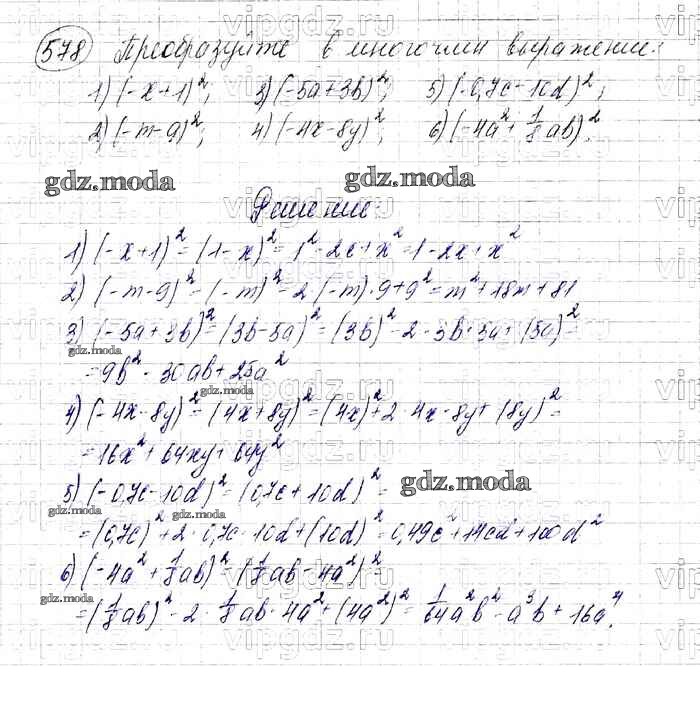 578 Преобразуйте в многочлен выражение:
1) (-x+1)²; 3) (-5a+3b)²; 5) (-0,7c-10d)²;
2) (-m-9)²; 4) (-4x-8y)²; 6) (-4a²+1/8ab)².
gdz.moda gdz.moda
Решение:
1) (-x+1)²=(1-x)²=1²-2x+x²=1-2x+x²
2) (-m-9)²=(-m)²-2·(-m)·9+9²=m²+18m+81
3) (-5a+3b)²=(3b-5a)²=(3b)²-2·3b·5a+(5a)²=
gdz.moda
=9b²-30ab+25a²
gdz.moda
4) (-4x-8y)²=(4x+8y)²=(4x)²+2·4x·8y+(8y)²=
=16x²+64xy+64y²
5) (-0,7c-10d)²=(0,7c+10d)²=
gdz.moda gdz.moda
=(0,7c)²+2·0,7c·10d+(10d)²=0,49c²+14cd+100d²
6) (-4a²+1/8ab)²=(1/8ab-4a²)²=
gdz.moda
=(1/8ab)²-2·1/8ab·4a²+(4a²)²=1/64a²b²-a³b+16a⁴.